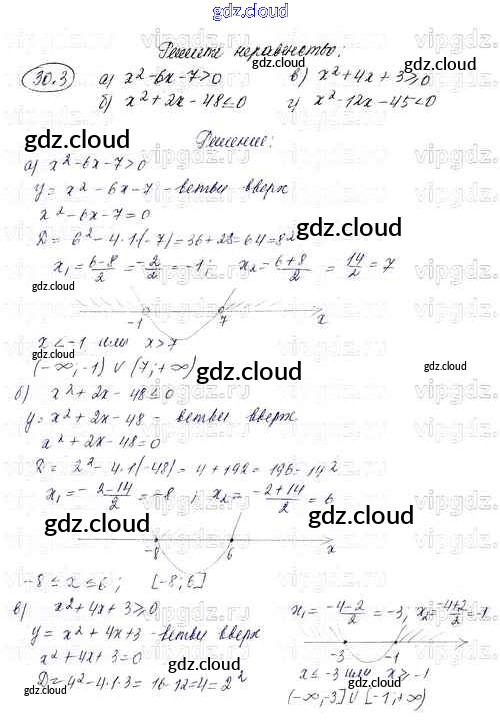 gdz.cloud
Решите неравенство:
30.3 а) x²-6x-7>0 в) x²+4x+3≥0
б) x²+2x-48≤0 г) x²-12x-45<0
gdz.cloud gdz.cloud
Решение:
а) x²-6x-7>0
gdz.cloud
y = x²-6x-7 - ветви вверх
x²-6x-7=0
gdz.cloud
D = 6²-4·1·(-7)=36+28=64=8²
x₁=6-8/2=-2/2=-1; x₂=6+8/2=14/2=7
gdz.cloud
-1 7 x
x<-1 или x>7
(-∞,-1) ∪ (7;+∞)
gdz.cloud gdz.cloud gdz.cloud
б) x²+2x-48≤0
y=x²+2x-48 - ветви вверх
x²+2x-48=0
D=2²-4·1·(-48)=4+192=196=14²
gdz.cloud
x₁=-2-14/2=-8; x₂=-2+14/2=6
gdz.cloud gdz.cloud
-8 6 x
-8≤x≤6; [-8;6]
gdz.cloud
в) x²+4x+3≥0
y=x²+4x+3 - ветви вверх
x²+4x+3=0
D=4²-4·1·3=16-12=4=2²
gdz.cloud
x₁=-4-2/2=-3, x₂=-4+2/2=-1
-3 -1 x
gdz.cloud
x≤-3 или x≥-1
(-∞,-3] ∪ [-1;+∞)